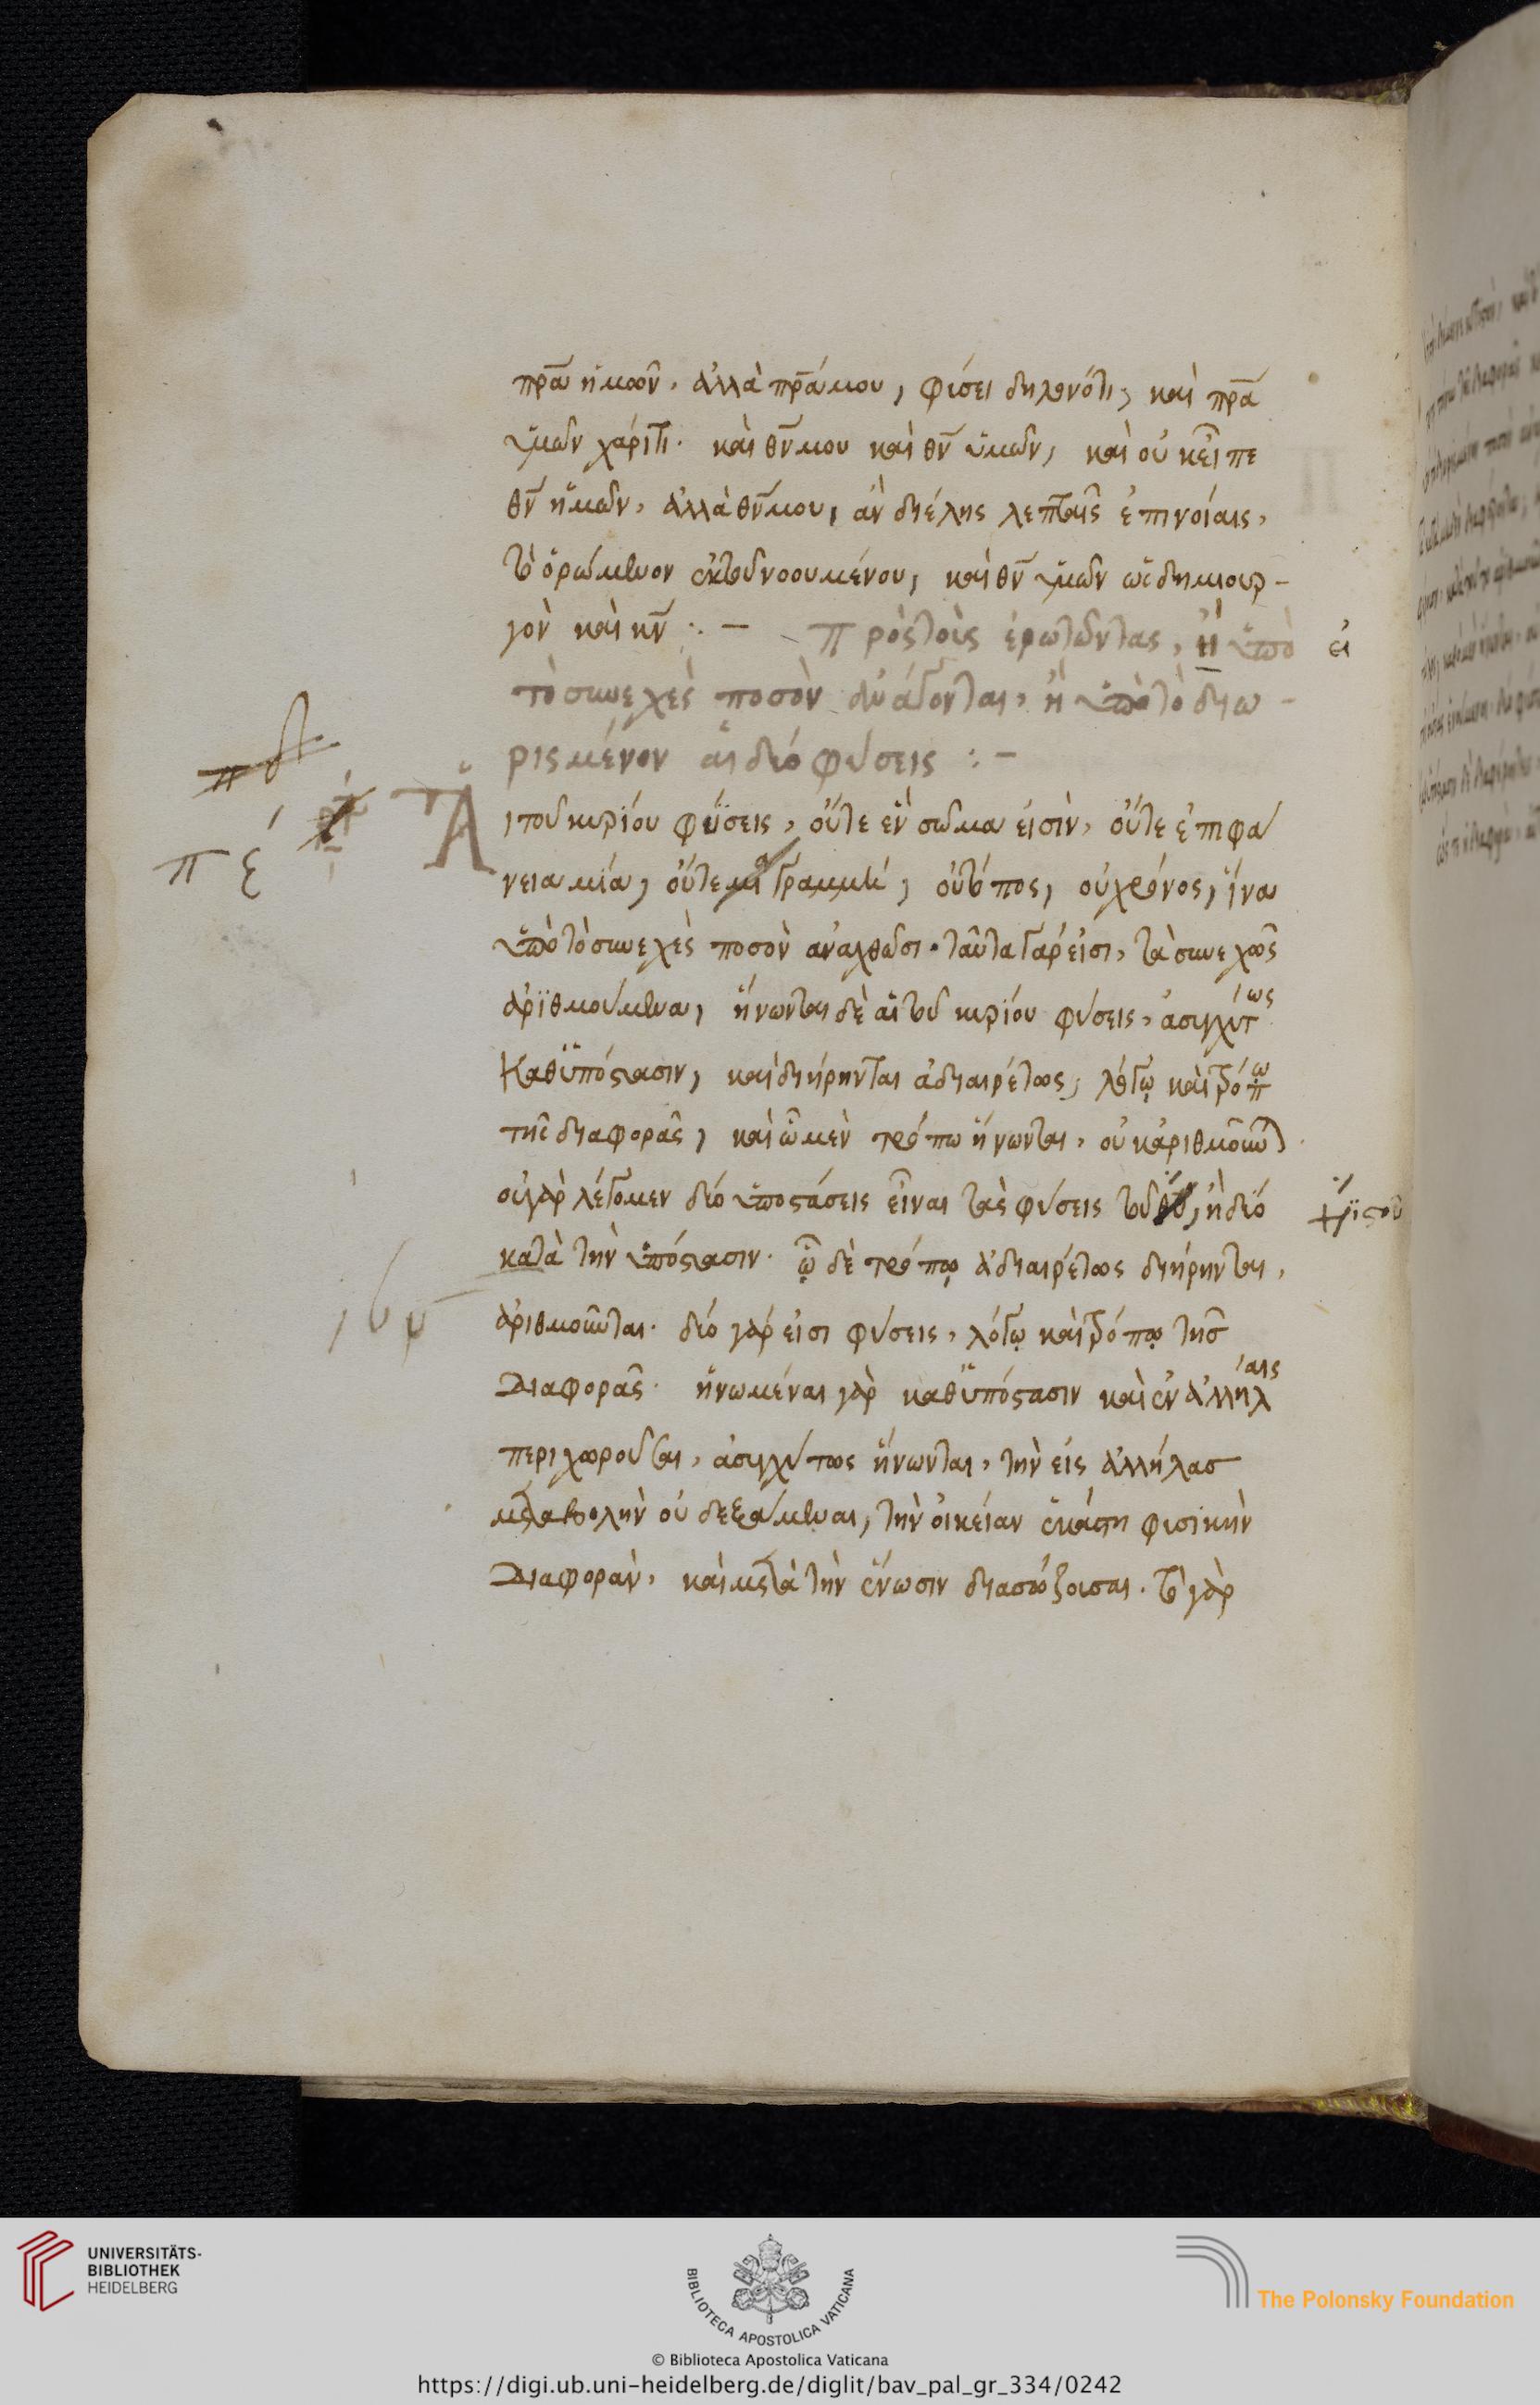 πρ̅α ἡμῶν, ἀλλὰ πρ̅α μου, φύσει δηλονότι, καὶ πρ̅α
ὑμῶν χάριτι. καὶ θν̅ μου καὶ θν̅ ὑμῶν, καὶ οὐκ εἶπε
θν̅ ἡμῶν, ἀλλὰ θν̅ μου, ἂν διέλης λεπταῖς ἐπινοίαις,
τὸ ὁρώμενον ἐκ τοῦ νοουμένου, καὶ θν̅ ὑμῶν ὡς δημιουρ-
γὸν καὶ κν̅ :. —
Πρὸς τοὺς ἐρωτῶντας, ἢ ὑπὸ
εἰ
τὸ συνεχὲς ποσὸν ἀνάγονται, ἢ ὑπὸ τὸ διω-
ρισμένον αἱ δύο φύσεις : —
πδ
πέ
Αἱ τοῦ κυρίου φύσεις, οὔτε ἓν σῶμα εἰσὶν, οὔτε ἐπιφά
νεια μία, οὔτε μία γραμμή, οὐ τόπος, οὐ χρόνος, ἵνα
ὑπὸ τὸ συνεχὲς ποσὸν ἀναχθῶσι. ταῦτα γάρ εἰσι, τὰ συνεχῶς
ἀριθμούμενα, ἥνωνται δὲ αἱ τοῦ κυρίου φύσεις, ἀσυγχύτως
καθ' ὑπόστασιν, καὶ διήρηνται ἀδιαιρέτως, λόγῳ καὶ τρόπῳ
τῆς διαφορᾶς, καὶ ᾧ μὲν τρόπω ἥνωνται, οὐκ ἀριθμοῦν)
οὐ γὰρ λέγομεν δύο ὑποστάσεις εἶναι τὰς φύσεις τοῦ, ἢ δύο
κατὰ τὴν ὑπόστασιν. ᾧ δὲ τρόπῳ ἀδιαιρέτως διήρηνται,
ἀριθμοῦνται. δύο γάρ εἰσι φύσεις, λόγῳ καὶ τρόπῳ τῆς
διαφορᾶς. ἡνωμέναι γὰρ καθ' ὑπόστασιν καὶ ἐν ἀλλήλαις
περιχωροῦσαι, ἀσυγχύτως ἥνωνται, τὴν εἰς ἀλλήλας
μεταβολὴν οὐ δεξάμεναι, τὴν οἰκείαν ἑκάστη φυσικὴν
διαφορὰν, καὶ μετὰ τὴν ἕνωσιν διασώζουσαι. τὸ γὰρ
UNIVERSITÄTS-
BIBLIOTHEK
HEIDELBERG
BIBLIOTECA APOSTOLICA VATICANA
The Polonsky Foundation
© Biblioteca Apostolica Vaticana
https://digi.ub.uni-heidelberg.de/diglit/bav_pal_gr_334/0242